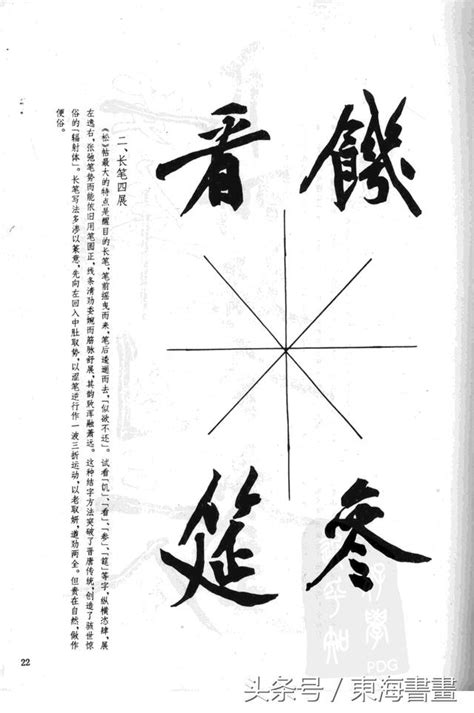 饑
看
參
筵
二、长笔四展
《松》帖最大的特点是醒目的长笔，笔前摇曳而来，笔后逶迤而去，「似欲不还」。试看「饥」、「看」、「参」、「筵」等字，纵横恣肆，展
左逸右，张弛笔势而能依旧用笔圆正，线条清劲委婉而筋脉舒展，其韵致浑融萧远。这种结字方法突破了晋唐传统，创造了骇世惊
俗的「辐射体」。长笔写法多渗以篆意，先向左回入中肚取势，以涩笔逆行作一波三折运动，以老取妍，遒劲两全。但贵在自然，做作
便俗。
22
PDG
头条号/東海書畫